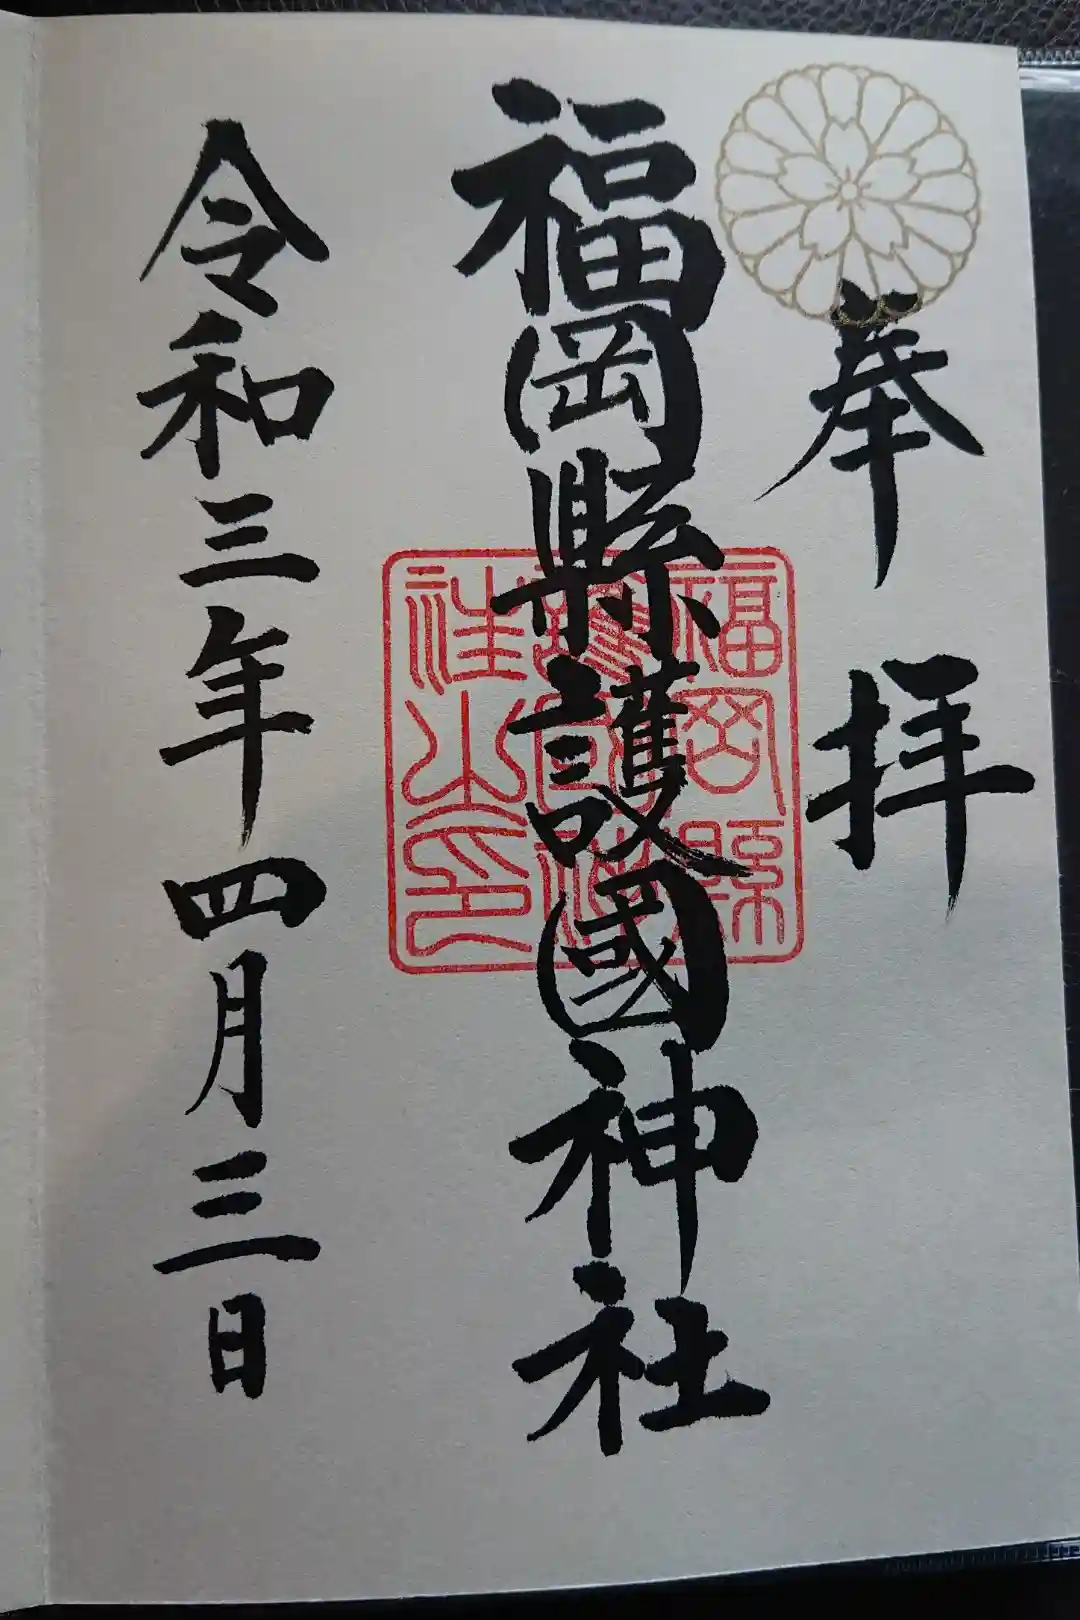 奉拝
福岡縣護國神社
福岡縣
護國神
社之印
令和三年四月三日